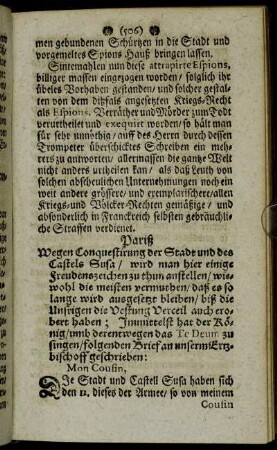 (506)
men gebundenen Schürtzen in die Stadt und
vorgemeltes Spions Hauß bringen lassen.
Sintemahlen nun diese attrapirte Espions,
billiger massen eingezogen worden / folglich ihr
übeles Vorhaben gestanden / und solcher gestal-
ten von dem dißfals angesetzten Kriegs-Recht
als Espions, Verräther und Mörder zum Tode
verurtheilet und exeqvirt worden / so hält man
für sehr unnöthig / auff des Herrn durch dessen
Trompeter überschicktes Schreiben ein meh-
rers zu antworten / allermassen die gantze Welt
nicht anders urtheilen kan / als daß Leuth von
solchen abscheulichen Unternehmungen noch ein
weit andere grössere / und exemplarischere / allen
Kriegs- und Völcker-Rechten gemäßige / und
absonderlich in Franckreich selbsten gebräuchli-
che Straffen verdienet.
Pariß
Wegen Conquestirung der Stadt und des
Castels Susa / wird man hier einige
Freudenszeichen zu thun anstellen / wie-
wohl die meisten vermuthen / daß es so
lange wird ausgesetzt bleiben / biß die
Unsrigen die Vestung Verceil auch ero-
bert haben; Immittelst hat der Kö-
nig / umb derentwegen das Te Deum zu
singen / folgenden Brief an unserm Ertz-
bischoff geschrieben:
Mon Cousin,
Die Stadt und Castell Susa haben sich
den 12. dieses der Armee / so von meinem
Cousin